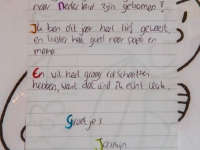 naar Nederland zijn gekomen?
Ik ben dit jaar heel lief geweest,
en luister heel goed naar papa en
mama
En wil heel graag rolschaatsen
hebben, want dat vind ik echt leuk.
Groetjes
Jasmijn